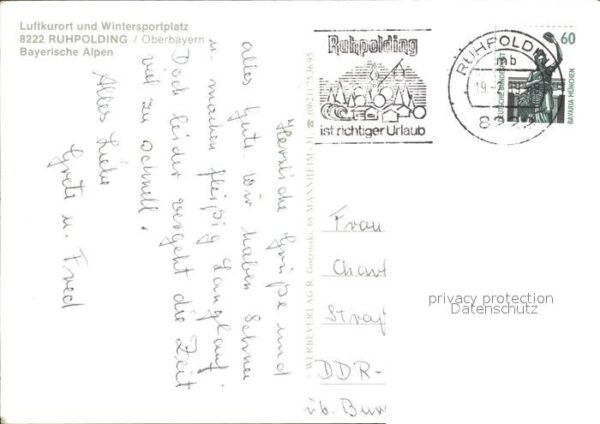 Luftkurort und Wintersportplatz
8222 RUHPOLDING / Oberbayern
Bayerische Alpen
Herzliche Grüße und
alles Gute. Wir haben Schnee
u. machen fleißig Langlauf.
Doch leider vergeht die Zeit
viel zu schnell.
Alles Liebe
Grete u. Fred
© WERBEVERLAG R. MANNHEIM
Ruhpolding
ist richtiger Urlaub
RUHPOLDING
mb
19.
60
DEUTSCHE BUNDESPOST
BAVARIA MÜNCHEN
Frau
Char
Straß
DDR-
üb.
privacy protection
Datenschutz